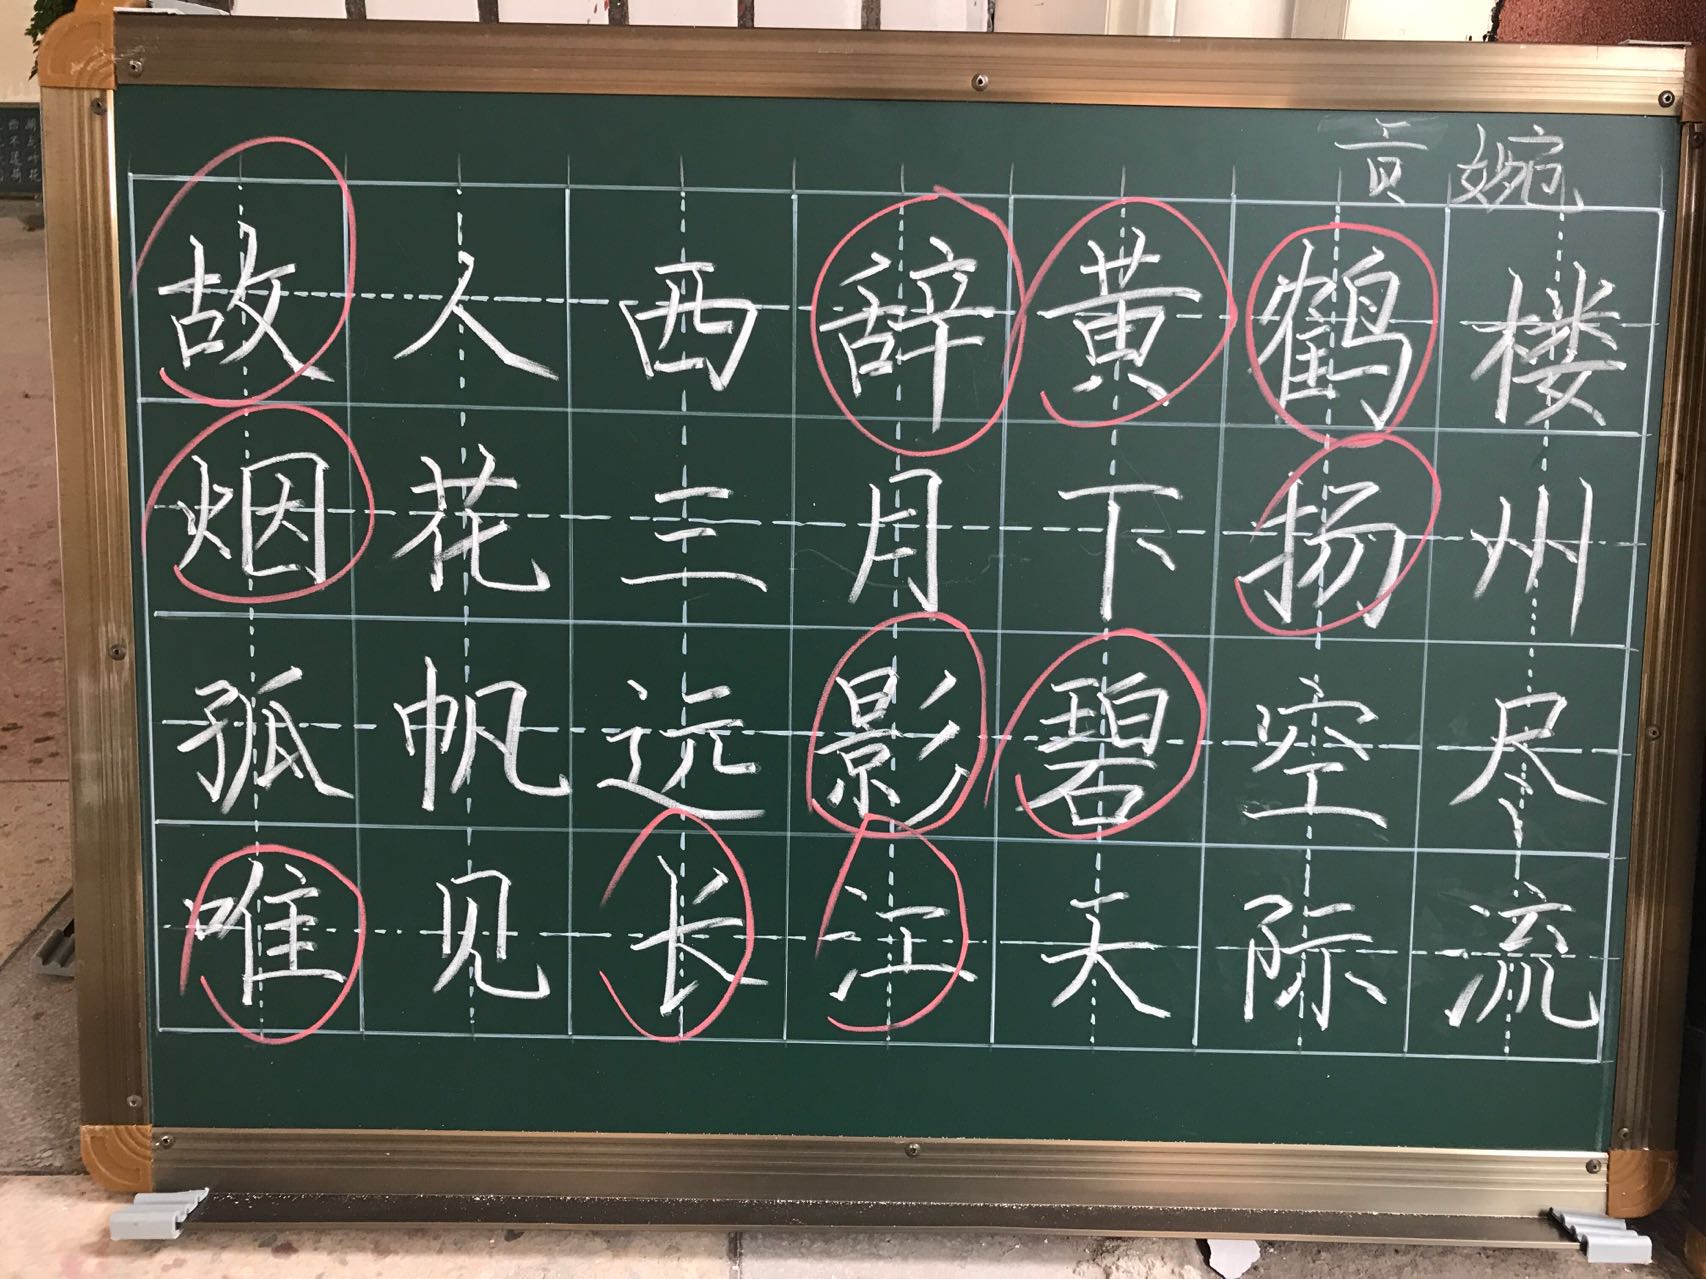 贡婉
故人西辞黄鹤楼
烟花三月下扬州
孤帆远影碧空尽
唯见长江天际流